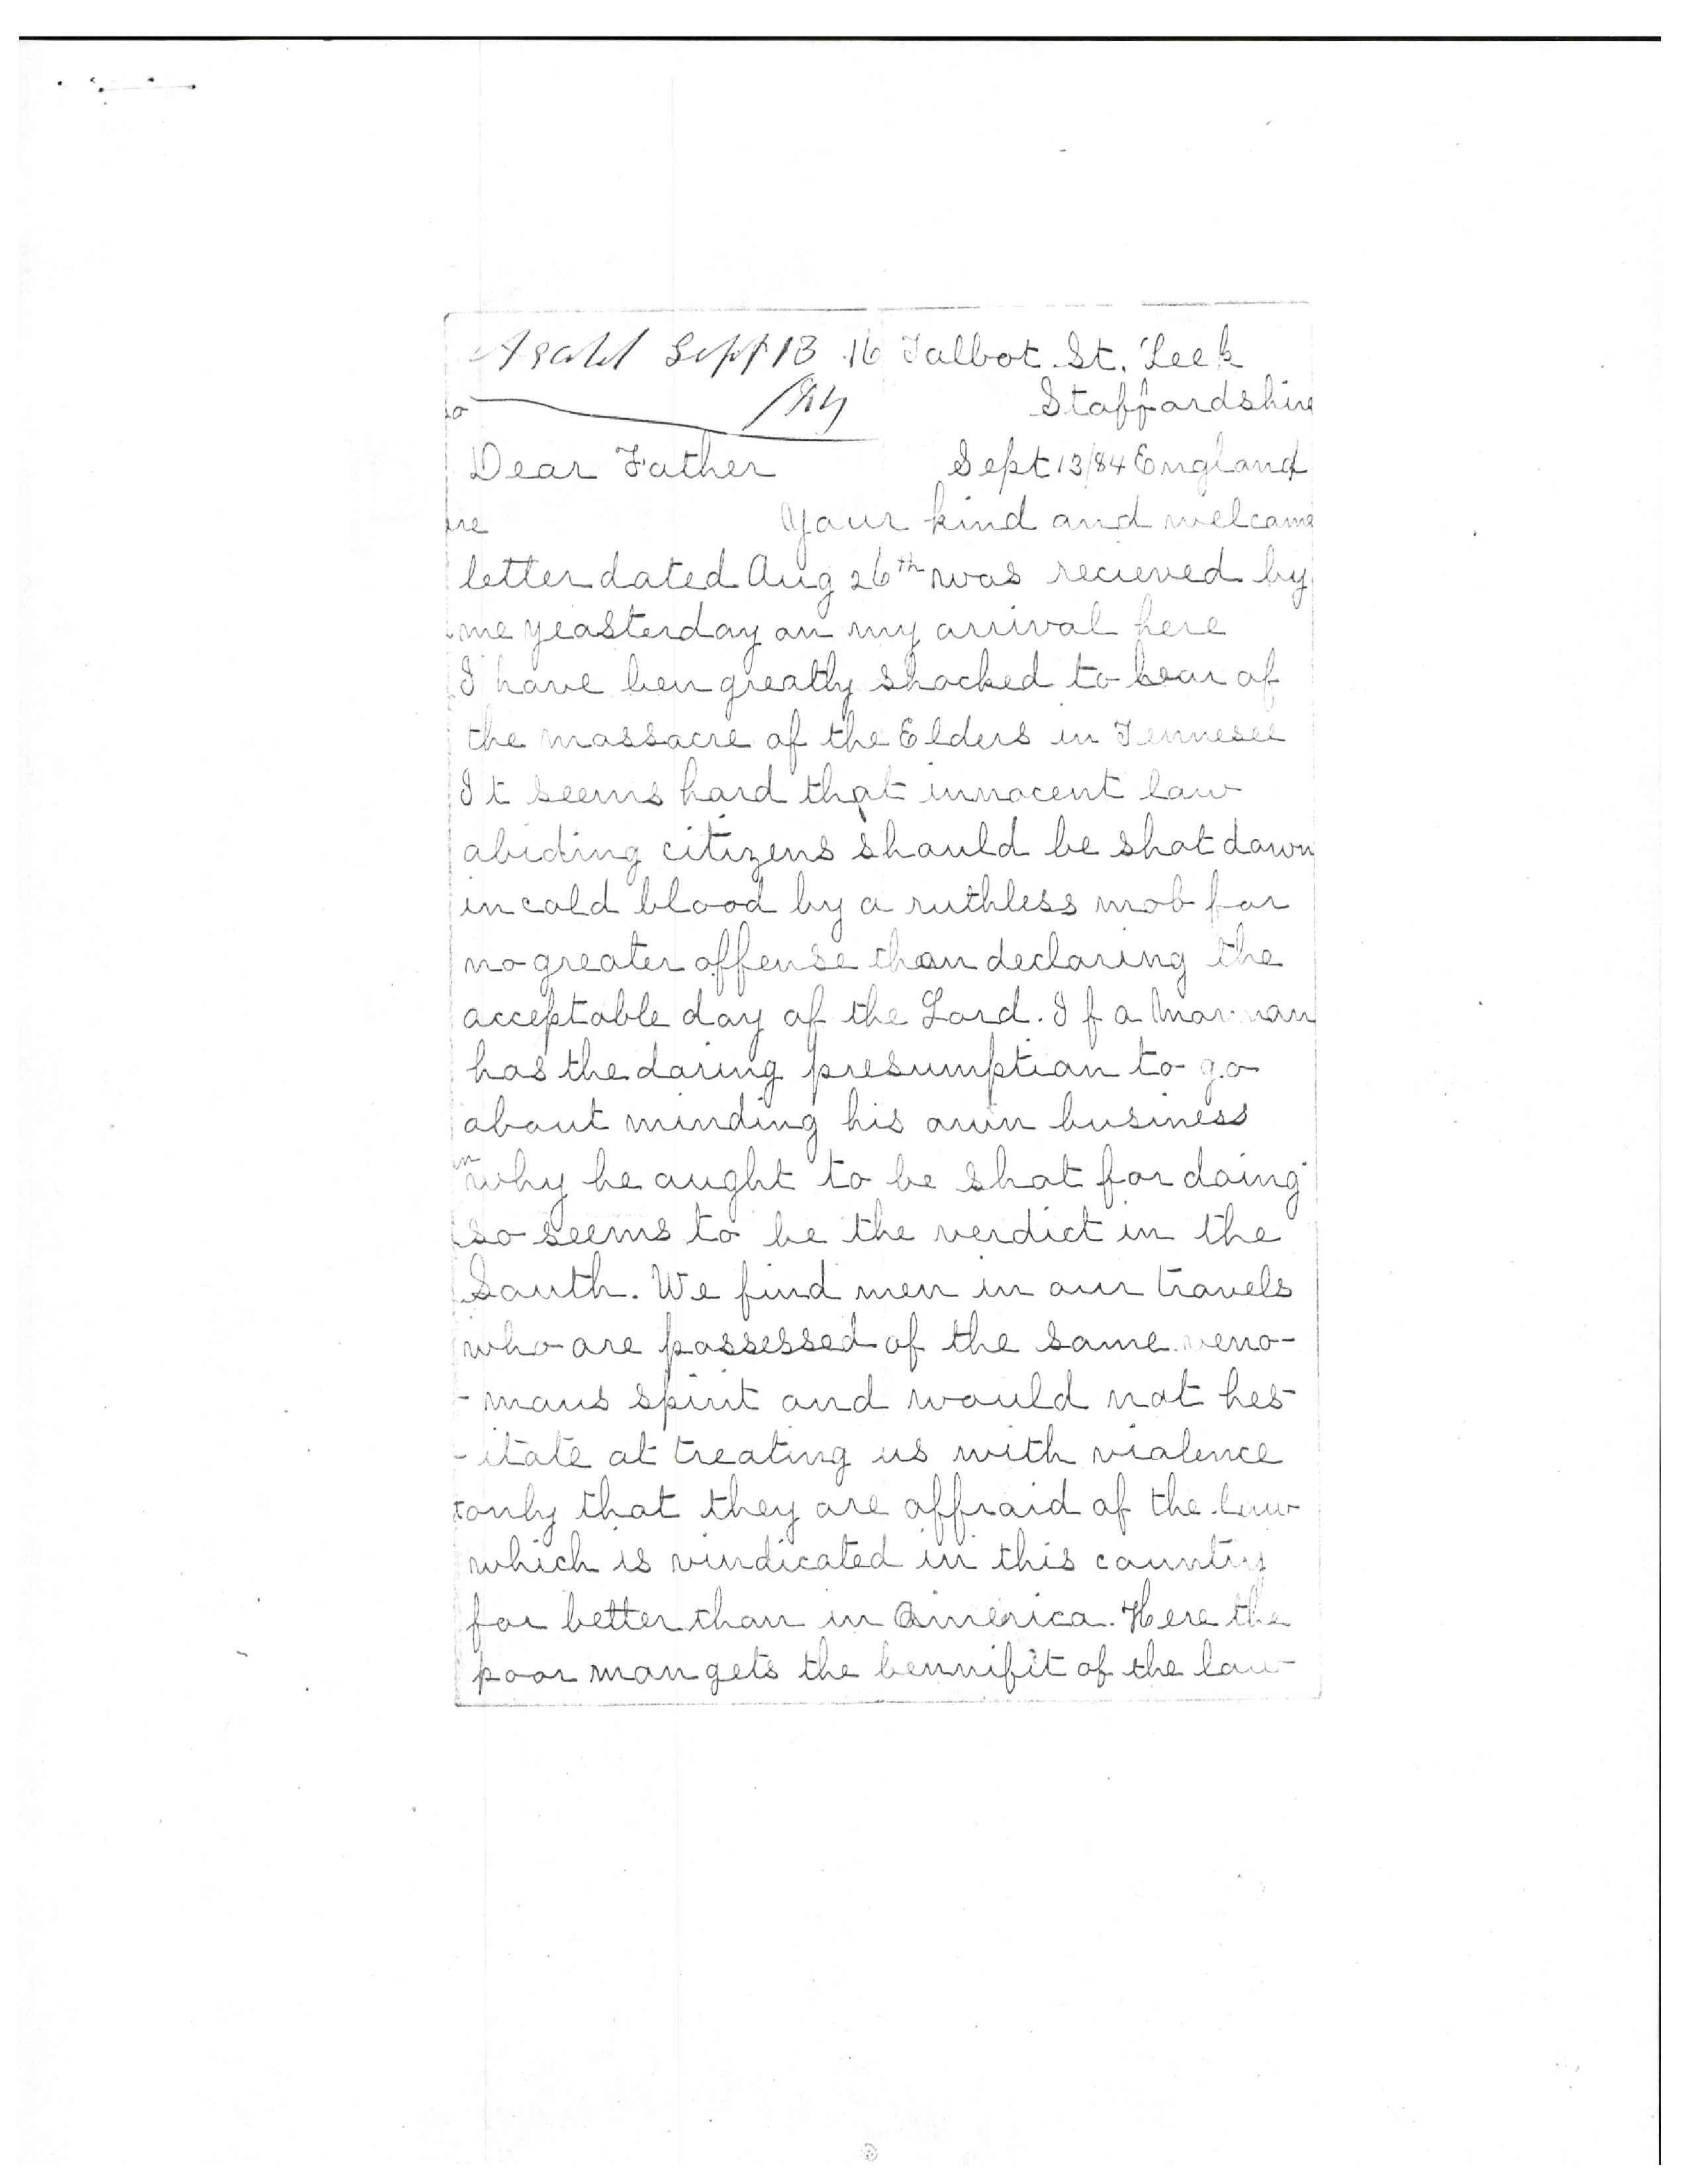 Asahel Sept 13 16 Talbot St. Leek
/84 Staffordshire
Dear Father Sept 13/84 England
Your kind and welcome
letter dated Aug 26th was recieved by
me yeasterday on my arrival here
I have ben greatly shocked to hear of
the massacre of the Elders in Tennesee
It seems hard that innocent law
abiding citizens should be shot down
in cold blood by a ruthless mob for
no greater offense than declaring the
acceptable day of the Lord. If a Mormon
has the daring presumption to go
about minding his own business
why he ought to be shot for doing
so seems to be the verdict in the
South. We find men in our travels
who are possessed of the same veno-
-mous spirit and would not hes-
-itate at treating us with violence
only that they are affraid of the law
which is vindicated in this country
far better than in America. Here the
poor man gets the bennifit of the law